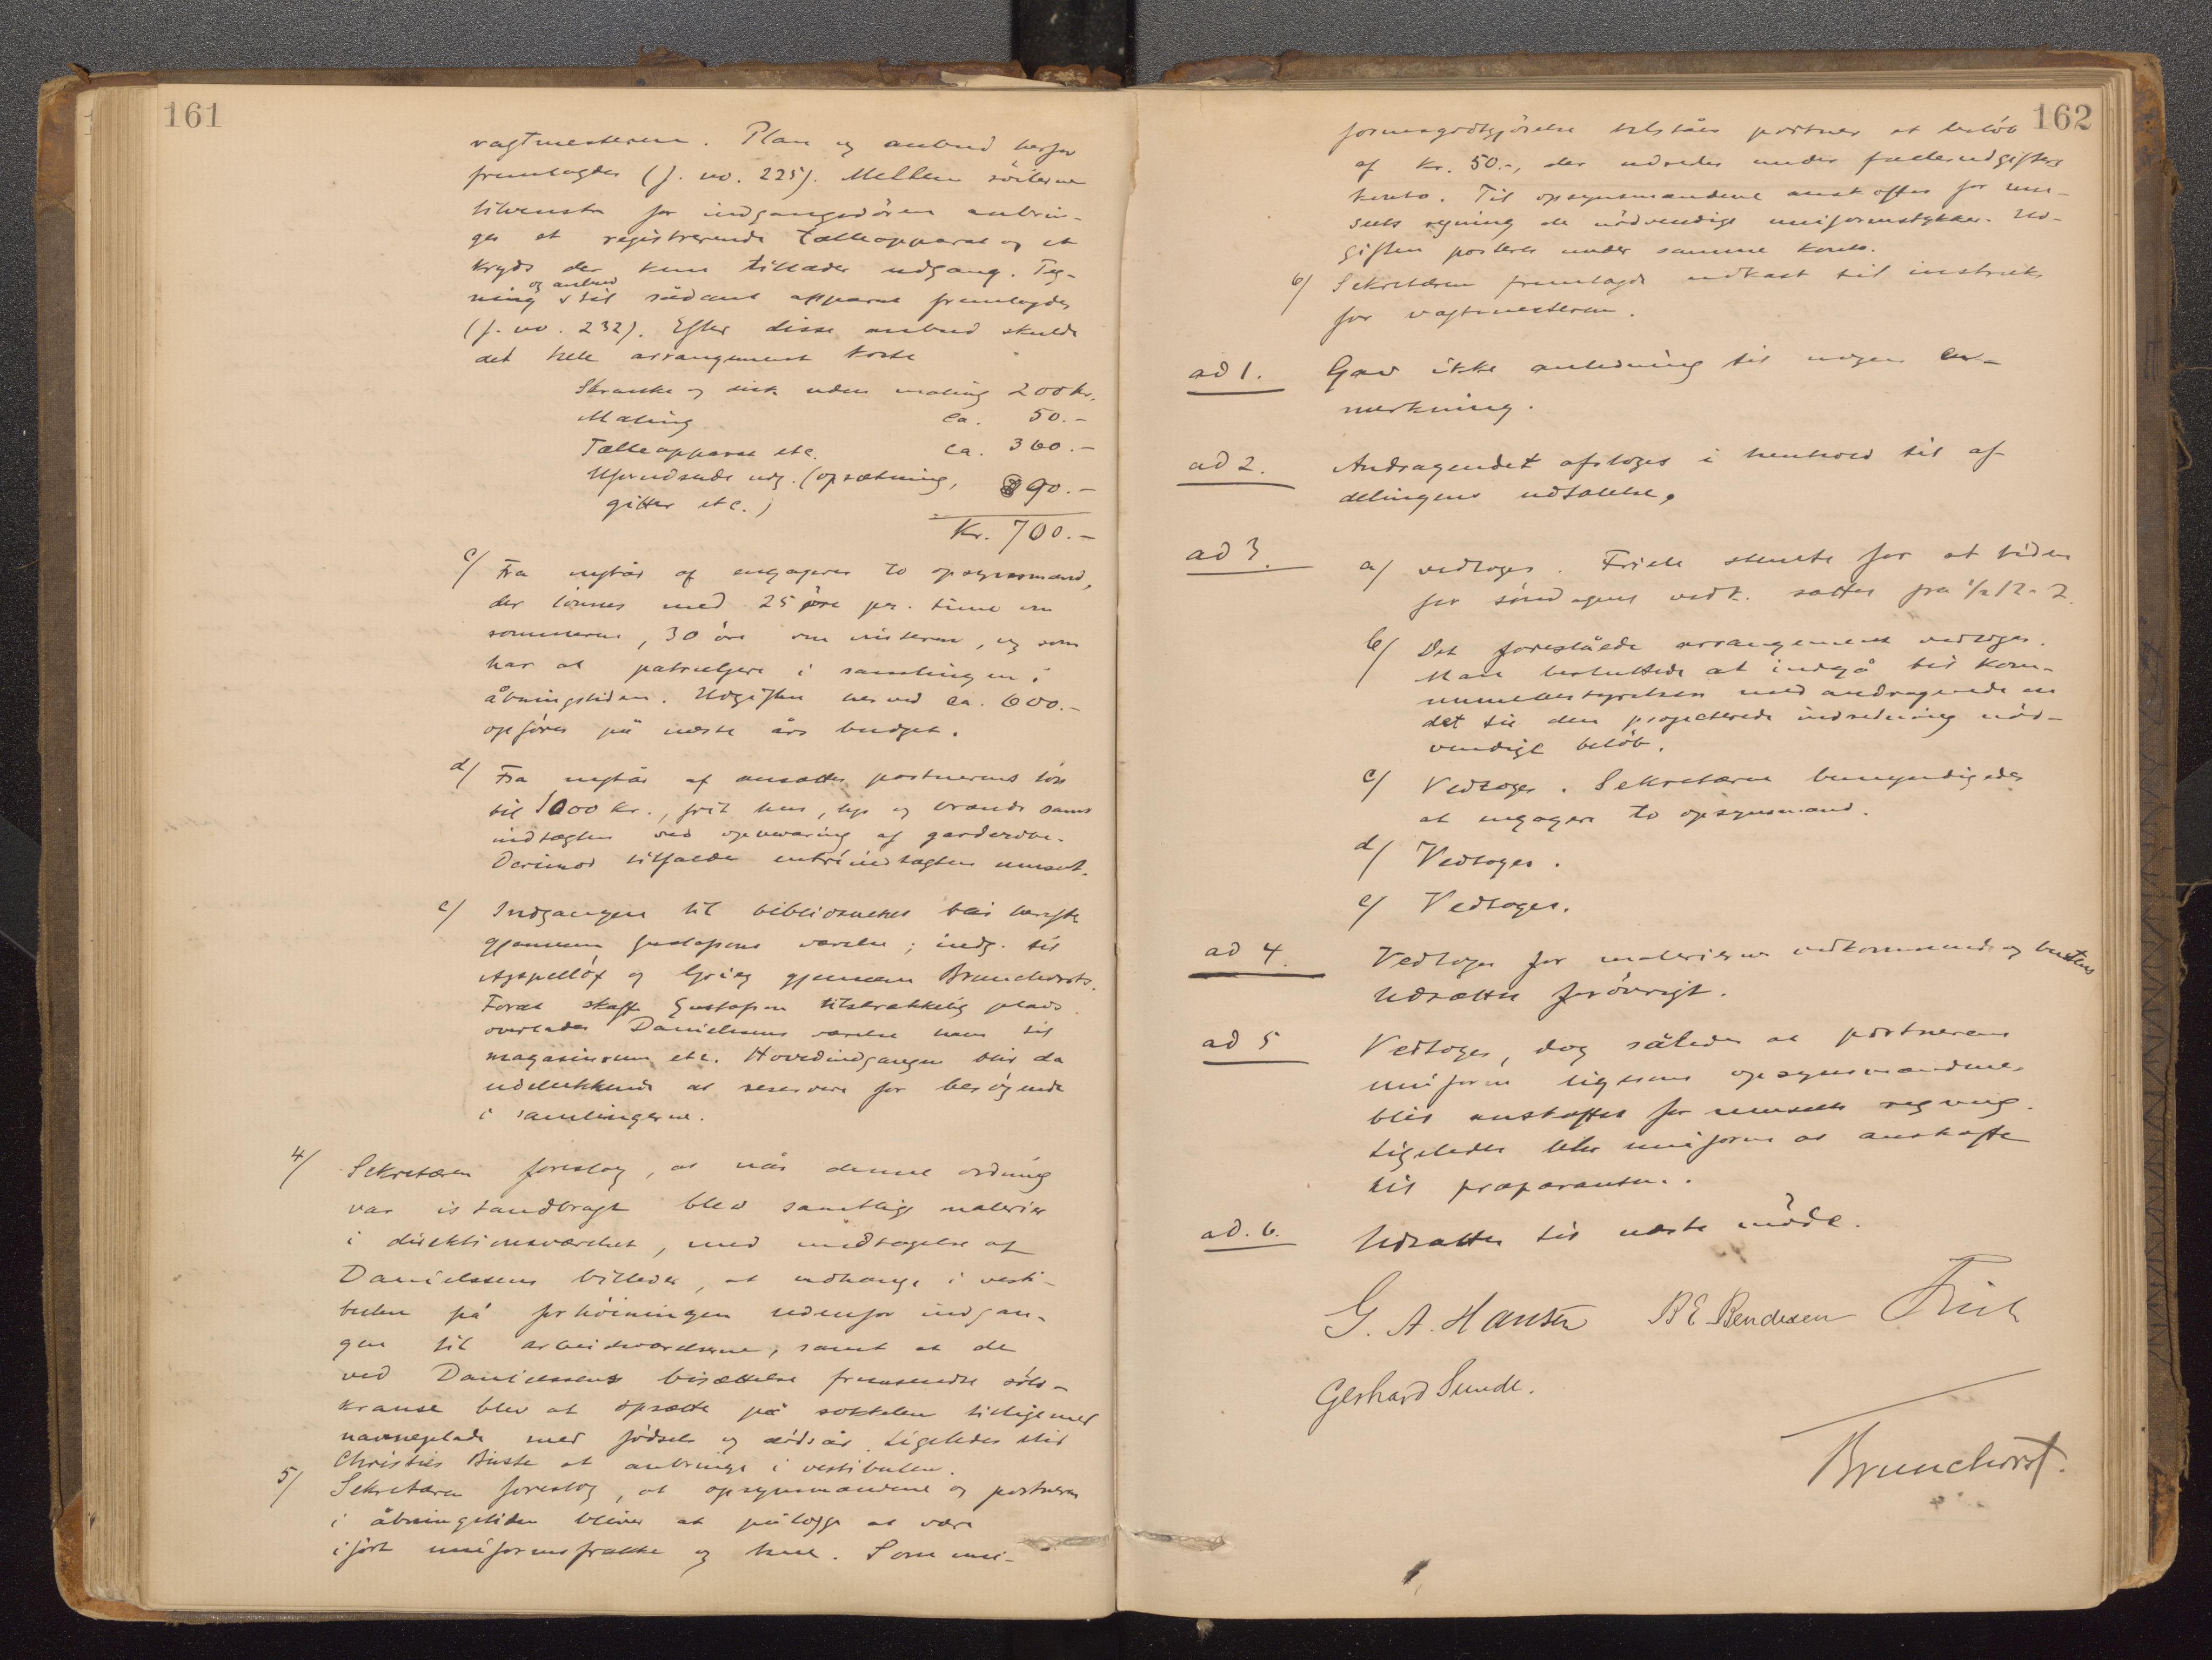 161
vagtmesteren. Plan og anbud herfor
fremlagdes (j. no. 225). Mellem söilerne
tilvenstre for indgangsdören anbrin-
ges et registrerende tælleapparat og et
kryds der kun tillader udgang. Teg-
og anbud
ning til sådant apparat fremlagdes
(j. no. 232). Efter disse anbud skulde
det hele arrangement koste
Skranke og disk uden maling 200 kr.
Maling ca. 50.-
Tælleapparat etc. ca. 360.-
Uforudsede udg. (opsætning, 90.-
gitter etc.)
Kr. 700.-
c/ Fra nytår af engageres to opsynsmænd,
der lönnes med 25 öre pr. time om
sommeren, 30 öre om vinteren, og som
har at patruljere i samlingen i
åbningstiden. Udgiften herved ca. 600.-
opföres på næste års budget.
d/ Fra nytår af ansættes portnerens lön
til 1000 kr., frit hus, lys og brænde samt
indtægten ved opbevaring af garderobe.
Derimod tilfalder entréindtægten museet.
e/ Indgangen til bibliotheket blir herefter
gjennem Gustafsons værelse; indg. til
Appellöf og Grieg gjennem Brunchorsts.
Forat skaffe Gustafson tilstrækkelig plads
overlades Danielssens værelse ham til
magasinrum etc. Hovedindgangen blir da
udelukkende at reservere for besögende
i samlingerne.
4/ Sekretæren foreslog, at når denne ordning
var istandbragt blev samtlige malerier
i direktionsværelset, med undtagelse af
Danielssens billeder, at ophænge i vesti-
bulen på forhöiningen udenfor indgan-
gen til arbeidsværelserne, samt at de
ved Danielssens bisættelse fremsendte sölv-
kranse blev at opsætte på sokkelen tilligemed
navneplade med födsels og dödsår. Ligeledes blir
Christies Buste at anbringe i vestibulen.
5/ Sekretæren foreslog, at opsynsmændene og portneren
i åbningstiden bliver at pålægge at være
ifört uniformsfrakke og hue. Som uni-
162
formsgodtgjörelse tilståes portner et belöb
af kr. 50.-, der udredes under fællesudgifters
konto. Til opsynsmændene anskaffes for mu-
seets regning de nödvendige uniformstykker. Ud-
giften posteres under samme konto.
6/ Sekretæren fremlagde udkast til instruks
for vagtmesteren.
ad 1. Gav ikke anledning til nogen be-
merkning.
ad 2. Andragendet afsloges i henhold til af
delingens udtalelse.
ad 3. a/ vedtoges. Friele stemte for at tiden
for söndagens vedk. sattes fra ½12-2.
b/ Det foreslåede arrangement vedtoges.
Man besluttede at indgå til kom-
munebestyrelsen med andragende om
det til den projecterede indredning nöd-
vendige belöb.
c/ Vedtoges. Sekretæren bemyndigedes
at engagere to opsynsmænd.
d/ Vedtoges.
e/ Vedtoges.
ad 4. Vedtoges for malerierne vedkommende og bustens
Udsættes forövrigt.
ad 5 Vedtoges, dog således at portnerens
uniform ligesom opsynsmændenes
blir anskaffet for museets regning.
Ligeledes blir uniform at anskaffe
til præparanten.
ad. 6. Udsattes til næste möde.
G. A. Hansen B E Bendixen Friele
Gerhard Sunde.
Brunchorst.